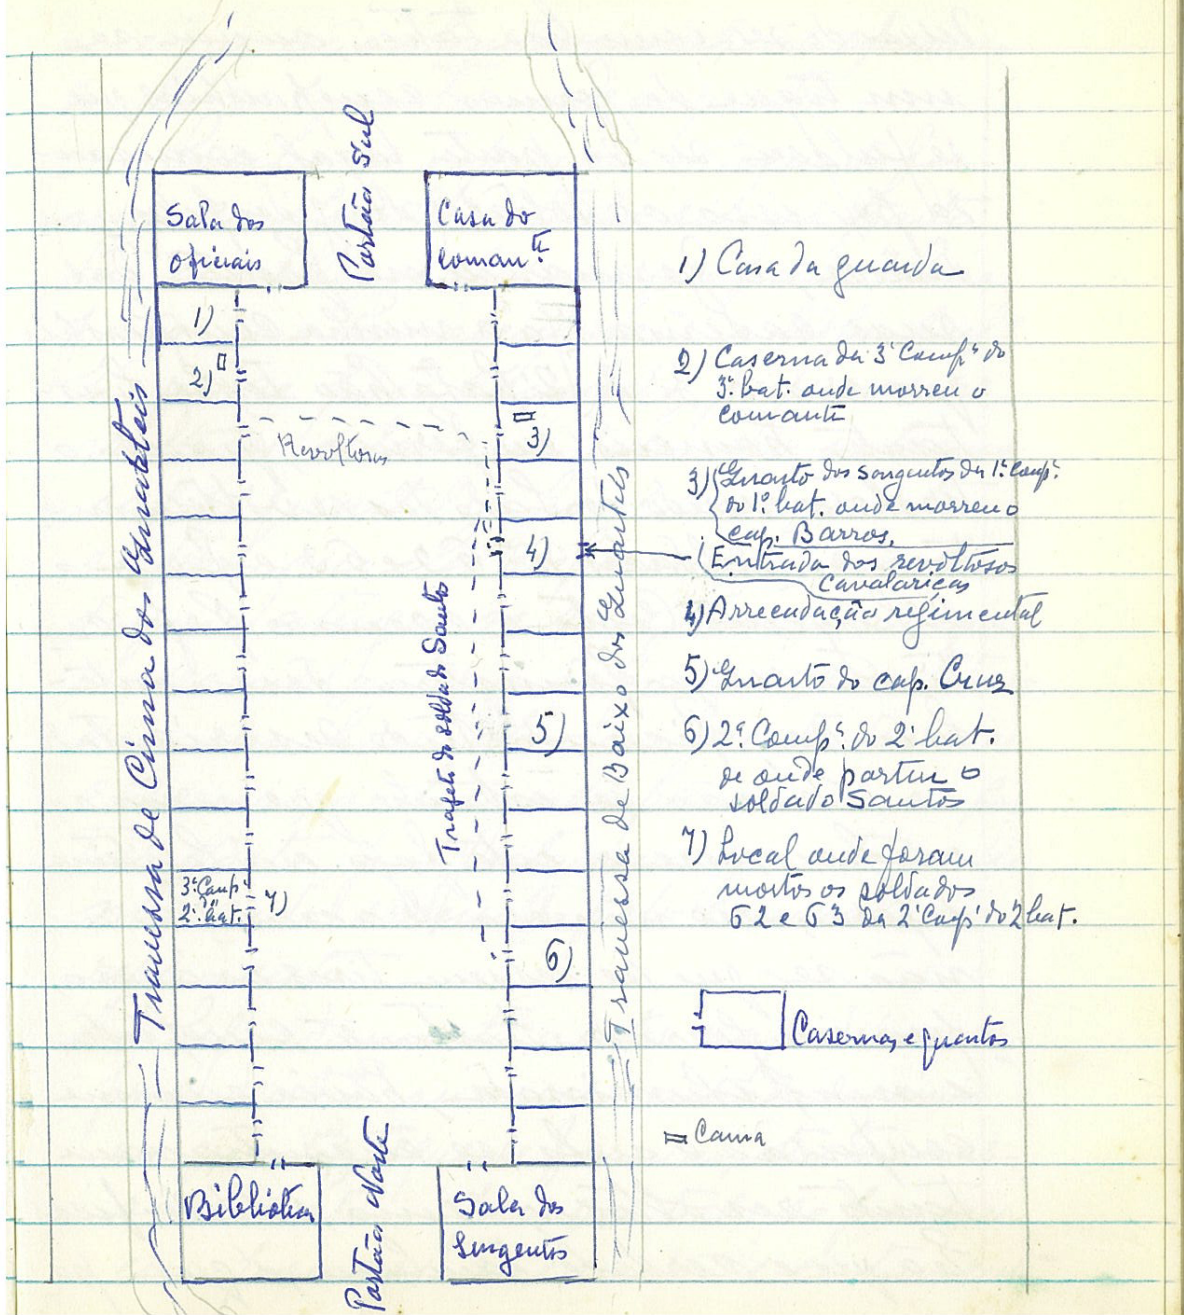 Portão Sul
Sala dos
oficiais
Casa do
Coman.te
1)
2)
Revoltosos
3)
4)
5)
6)
3ª Comp.ª
2º bat.
7)
Travessa de Cima dos Quarteis
Trajeto do soldado Santos
Travessa de Baixo dos Quarteis
Biblioteca
Portão Norte
Sala dos
Sargentos
1) Casa da guarda
2) Caserna da 3ª Comp.ª do
3º bat. onde morreu o
comante
3) Quarto dos sargentos da 1ª Comp.ª
do 1º bat. onde morreu o
cap. Barros.
(Entrada dos revoltosos
Cavalariças
4) Arrecadação regimental
5) Quarto do cap. Cruz
6) 2ª Comp.ª do 2º bat.
de onde partiu o
soldado Santos
7) Local onde foram
mortos os soldados
62 e 63 da 2ª Comp.ª do 2º bat.
Casernas e quartos
Cama